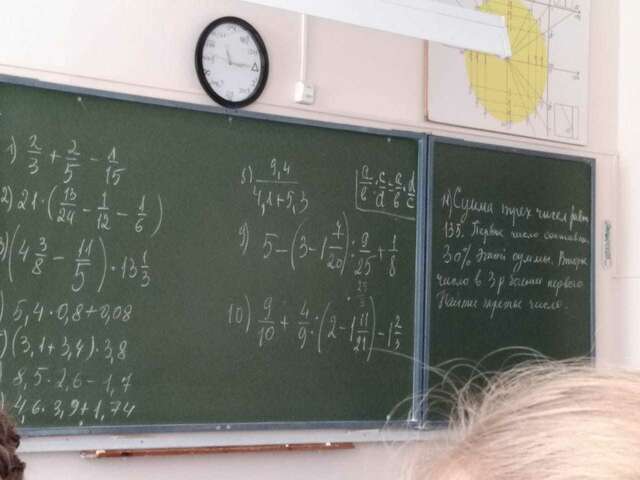 1) 2/3 + 2/5 - 1/15
2) 21 · (13/24 - 1/12 - 1/6)
3) (4 3/8 - 11/5) · 13 1/3
) 5,4 · 0,8 + 0,08
) (3,1 + 3,4) · 3,8
) 8,5 · 2,6 - 1,7
) 4,6 · 3,9 + 1,74
8) 9,4 / 4,1 + 5,3
a/b : c/d = a/b · d/c
9) 5 - (3 - 1 7/20) : 9/25 + 1/8
10) 9/10 + 4/9 · (2 - 1 11/21) - 1 2/3
Сумма трех чисел
135. Первое число
30% этой суммы. Второе
число в 3 р больше первого.
Найти третье число.